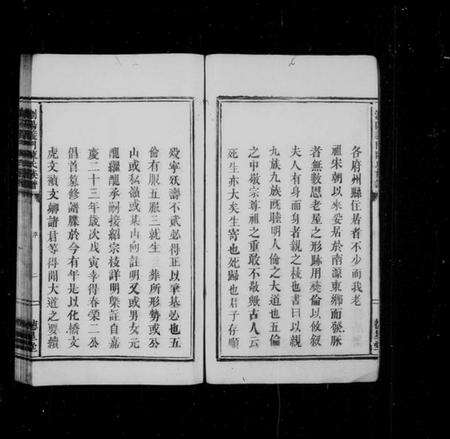 各府州縣任居者不少而我老
祖宋朝以來妥居於南源東鄉而發脈
者無數恩老屋之形歸用彝倫以攸敘
夫人有身而身者親之枝也書曰以親
九族九族旣睦明人倫之大道也五倫
之中敬宗尊祖之重敢不敬歟古人云
死生亦大矣生寄也死歸也君子存順
歿寧殀壽不貳必得正以華墓必也五
倫有服五服三就生 葬所形勢或公
山或私嶺或某山向註明爻或男女元
配繼配承嗣接紹宗枝詳明榮註自嘉
慶二十三年歲次戊寅幸得春榮二公
倡首墓修譜牒於今有年是以化橋文
虎文禎文嫏諸君等得聞大道之要續